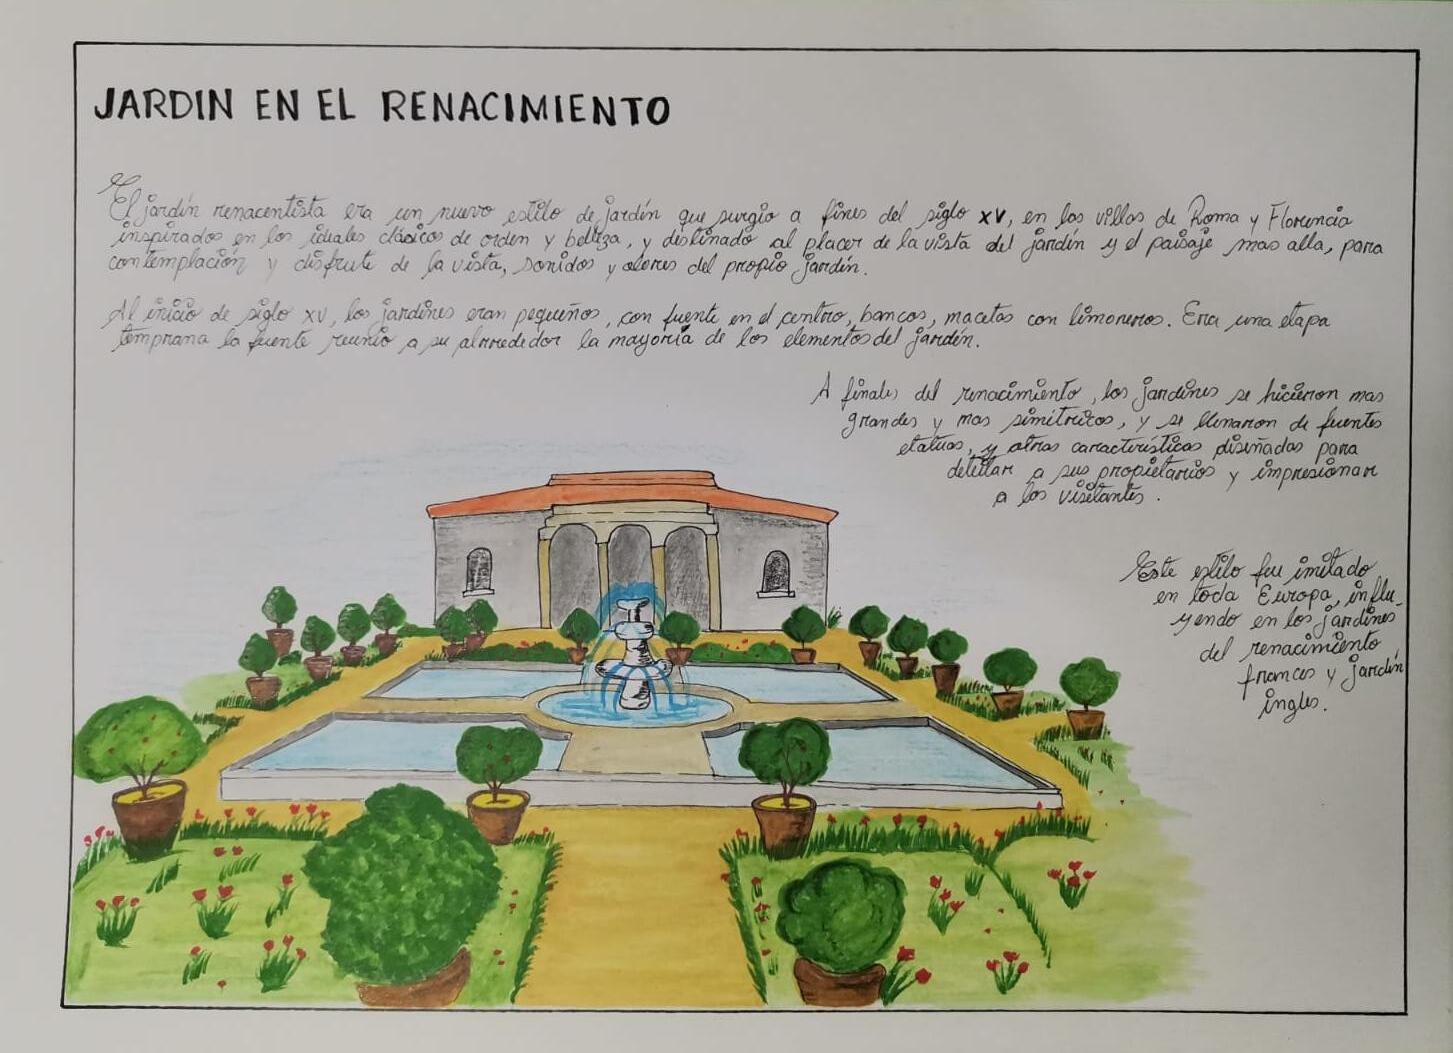 JARDIN EN EL RENACIMIENTO
El jardín renacentista era un nuevo estilo de jardín que surgio a fines del siglo XV, en las villas de Roma y Florencia
inspirados en los ideales clásicos de orden y belleza, y destinado al placer de la vista del jardín y el paisaje mas alla, para
contemplación y disfrute de la vista, sonidos y olores del propio jardín.
Al inicio de siglo XV, los jardines eran pequeños, con fuente en el centro, bancos, macetas con limoneros. Era una etapa
temprana la fuente reunio a su alrrededor la mayoría de los elementos del jardín.
A finales del renacimiento, los jardines se hicieron mas
grandes y mas simétricos, y se llenaron de fuentes
etatuas, y otras características diseñadas para
deleitar a sus propietarios y impresionar
a los visitantes.
Este estilo fue imitado
en toda Europa, influ-
yendo en los jardines
del renacimiento
frances y jardín
ingles.